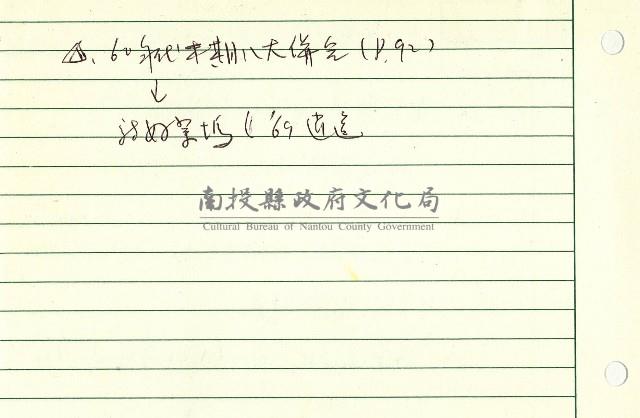 60年代末期八大併合 (P.92)
↓
好萊塢 '69
南投縣政府文化局
Cultural Bureau of Nantou County Government